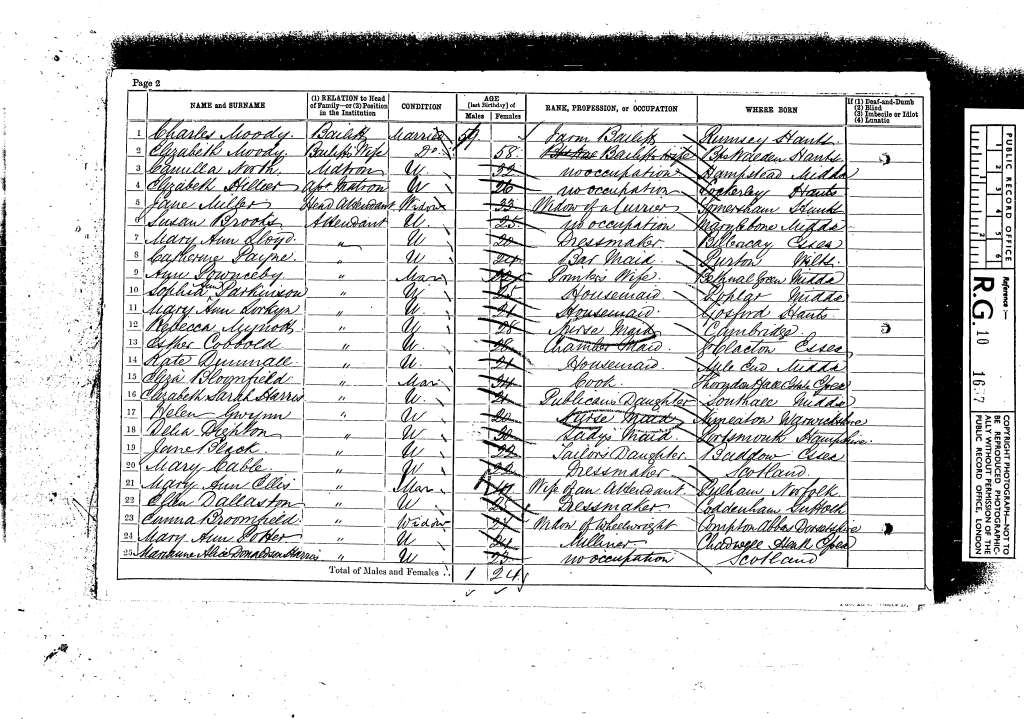 Page 2
NAME and SURNAME (1) RELATION to Head of Family—or (2) Position in the Institution CONDITION AGE [last Birthday] of Males Females RANK, PROFESSION, or OCCUPATION WHERE BORN If (1) Deaf-and-Dumb (2) Blind (3) Imbecile or Idiot (4) Lunatic
1 Charles Moody Bailiff Married Farm Bailiff Rumsey Hants
2 Elizabeth Moody Bailiffs Wife Do 58 Bailiffs Wife Hants
3 Camilla North Matron U 32 no occupation Hampstead Middx
4 Elizabeth Hillier Matron U 26 no occupation Lockerley Hants
5 Jane Miller Head Attendant Widow 33 Widow of a Currier Hants
6 Susan Brooks Attendant U 25 no occupation Marylebone Middx
7 Mary Ann Lloyd " U 20 Dressmaker Billericay Essex
8 Catherine Payne " U 24 Bar Maid Purton Wilts
9 Ann " Mar Wife Bethnal Green Middx
10 Sophia Ann Parkinson " U 25 Housemaid Poplar Middx
11 Mary Ann " U 21 Housemaid Gosford Hants
12 Rebecca Mynott " U 28 Nurse Maid Cambridge
13 Esther Cobbold " U 28 Chamber Maid Clacton Essex
14 Kate Dunmall " U 21 Housemaid Mile End Middx
15 Eliza Bloomfield " Mar 34 Cook Essex
16 Elizabeth Sarah Harris " U 21 Publicans Daughter Southall Middx
17 Helen Gwynn " U 20 Nurse Maid Nuneaton Warwickshire
18 Delia Dighton " U 30 Ladys Maid Portsmouth Hampshire
19 Jane Black " U 22 Tailors Daughter Baddow Essex
20 Mary Cable " U 22 Dressmaker Scotland
21 Mary Ann Ellis " Mar Wife of an Attendant Pulham Norfolk
22 Ellen Dallaston " U 25 Dressmaker Coddenham Suffolk
23 Emma Broomfield " Widow 27 Widow of Wheelwright Compton Abbas Dorsetshire
24 Mary Ann Potter " U 21 Milliner Chadwell Heath Essex
25 Marianne Alice Donaldson Harris " U 23 no occupation Scotland
Total of Males and Females 1 24
PUBLIC RECORD OFFICE
1 2 3 4 5 6
1 2
Reference:-
R.G. 10 1637
COPYRIGHT PHOTOGRAPH—NOT TO
BE REPRODUCED PHOTOGRAPHIC-
ALLY WITHOUT PERMISSION OF THE
PUBLIC RECORD OFFICE, LONDON